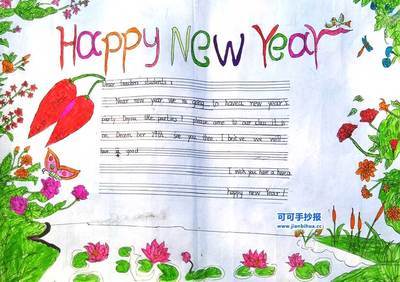 Happy New Year
Dear teachers students:
Year new year we is going to havea new year's
party. Do you like parties? please come to our class it is
on. Decem ber 29th. see you then. I belive we will
have. good
I wish you have a havea
happy new Year!
可可手抄报
www.jianbihua.cc